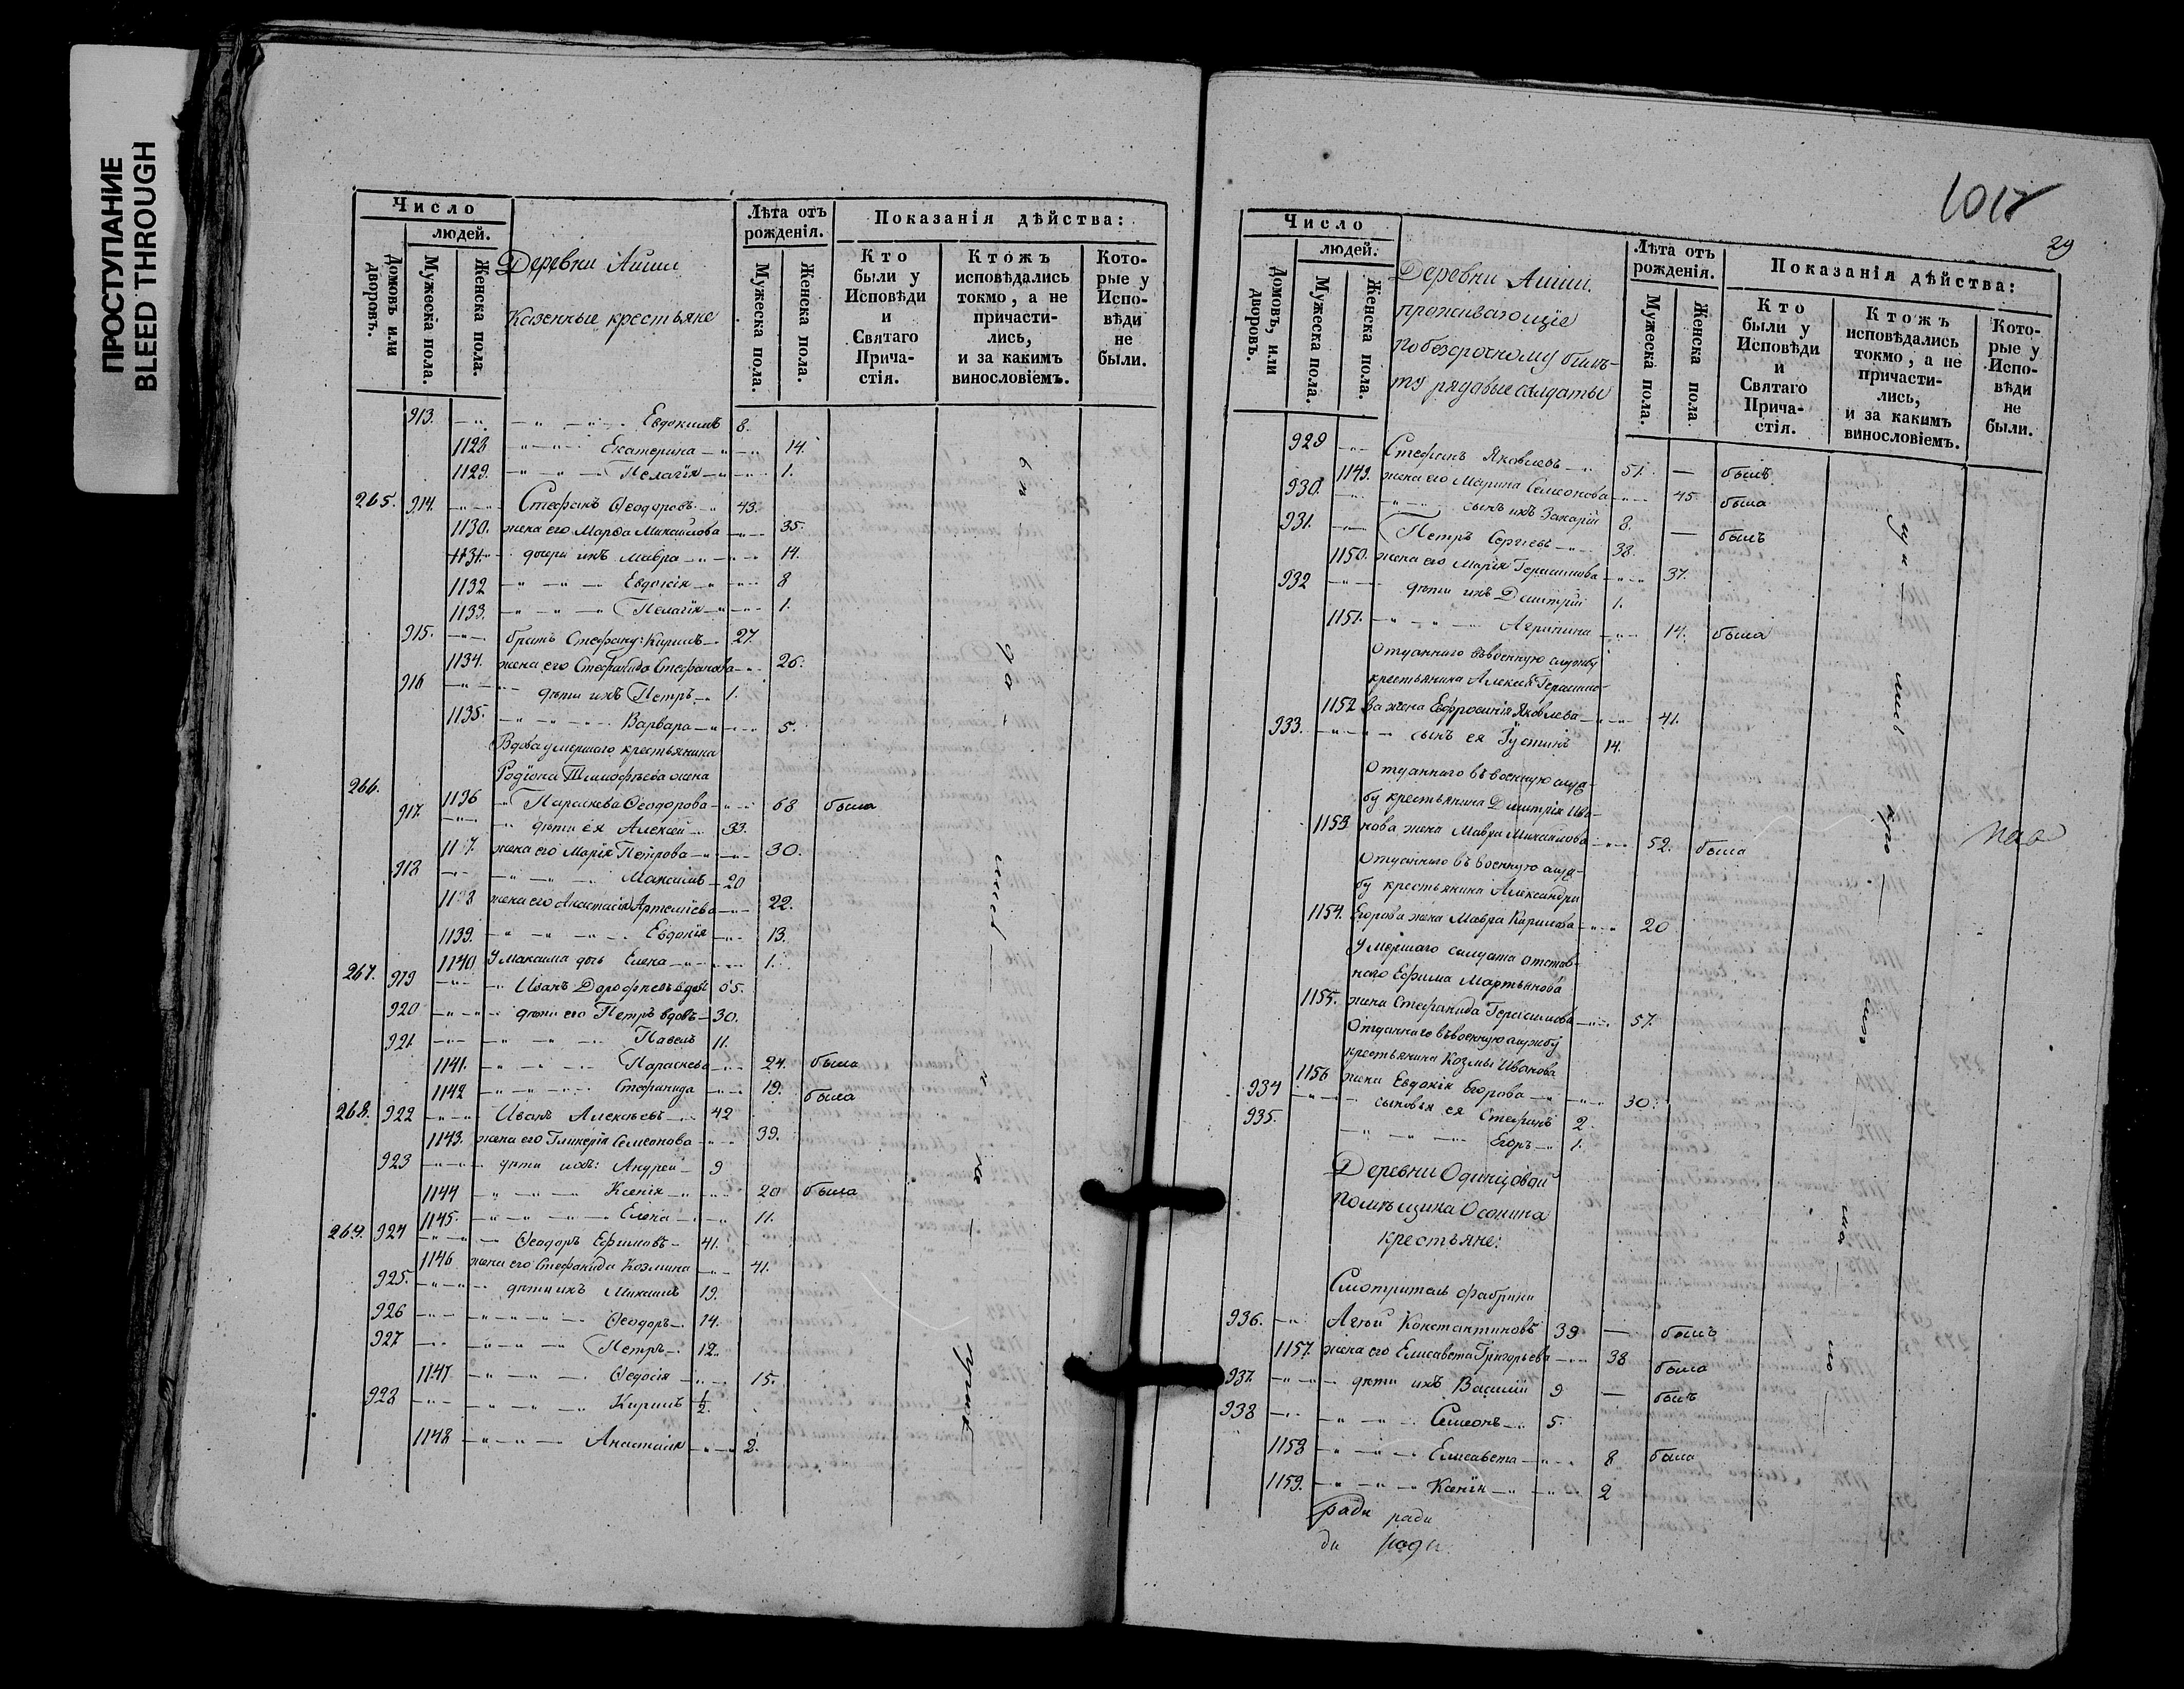 ПРОСТУПАНИЕ
BLEED THROUGH
Число
людей.
Домовъ или дворовъ.
Мужеска пола.
Женска пола.
Деревни Айши
Казенные крестьяне
Лѣта отъ рожденія.
Мужеска пола.
Женска пола.
Показанія дѣйства:
Кто были у Исповѣди и Святаго Прича-стія.
Ктожъ исповѣдались токмо, а не причасти-лись, и за какимъ винословіемъ.
Кото-рые у Испо-вѣди не были.
913. Евдокимъ 8.
1128 Екатерина 14.
1129. Пелагія 1.
265. 914. Стефанъ Ѳеодоровъ 43.
1130. жена его Марѳа Михайлова 35.
1131. дочери ихъ Мавра 14.
1132 Евдокія 8
1133. Пелагія 1.
915. братъ Стефану: Кирилъ 27.
1134. жена его Стефанида Стефанова 26.
916 дѣти ихъ Петръ 1.
1135. Варвара 5.
Вдова умершаго крестьянина
Родіона Тимофѣева жена
266. 1136 Параскева Ѳеодорова 68 была
917. дѣти ея Алексей 33.
1137. жена его Марія Петрова 30.
918 Максимъ 20
1138 жена его Анастасія Артеміева 22.
1139. Евдокія 13.
1140 У Максима дочь Елена 1.
267. 919 Иванъ Дорофеевъ вдовъ 65.
920 дѣти его Петръ вдовъ 30.
921. Павелъ 11.
1141. Параскева 24. была
1142 Стефанида 19. была
268. 922 Иванъ Алексѣевъ 42
1143. жена его Гликерія Семеонова 39.
923 дѣти ихъ: Андрей 9
1144 Ксенія 20 была
1145. Елена 11.
269. 924 Ѳеодоръ Ефимовъ 41.
1146 жена его Стефанида Козмина 41.
925. дѣти ихъ Михаилъ 19.
926 Ѳеодоръ 14.
927 Петръ 12.
1147 Ѳедосія 15.
928 Кирилъ 1/2.
1148 Анастасія 2.
1018
29
Число
людей.
Домовъ, или дворовъ.
Мужеска пола.
Женска пола.
Деревни Айши.
проживающіе
по безсрочному биле-
ту рядовые солдаты
Лѣта отъ рожденія.
Мужеска пола.
Женска пола
Показанія дѣйства:
Кто были у Исповѣди и Святаго Прича-стія.
Ктожъ исповѣдались токмо, а не причасти-лись, и за какимъ винословіемъ.
Кото-рые у Испо-вѣди не были.
929 Стефанъ Яковлевъ 51. — былъ
1149. жена его Марина Семеонова 45. была
930. сынъ ихъ Захарій 8.
931. Петръ Сергѣевъ 38. — былъ
1150. жена его Марія Герасимова 37.
932 дѣти ихъ Дмитрій 1.
1151. Агрипина 14. была
Отданнаго въ военную службу
крестьянина Алексея Герасимо-
1152 ва жена Ефросинія Яковлева 41.
933. сынъ ея Іустинъ 14.
Отданнаго въ военную служ-
бу крестьянина Дмитрія Ива-
1153 нова жена Мавра Михаилова 52. была
Отданнаго въ военную служ-
бу крестьянина Александра
1154. Егорова жена Мавра Кирилова 20
Умершаго солдата отстав-
наго Ефима Мартьянова
1155. жена Стефанида Герасимова 57.
Отданнаго въ военную службу
крестьянина Козмы Иванова
1156 жена Евдокія Егорова 30.
934 сыновья ея Стефанъ 2.
935. Егоръ 1.
Деревни Одинцовой
помѣщика Осокина
крестьяне:
Смотритель фабрики
936. Агѣй Константиновъ 39 — былъ
1157. жена его Елисавета Григорьева 38 была
937. дѣти ихъ Василій 9 — былъ
938 Семеонъ 5.
1158 Елисавета 8 была
1159. Ксенія 2
ради ради
ди ради